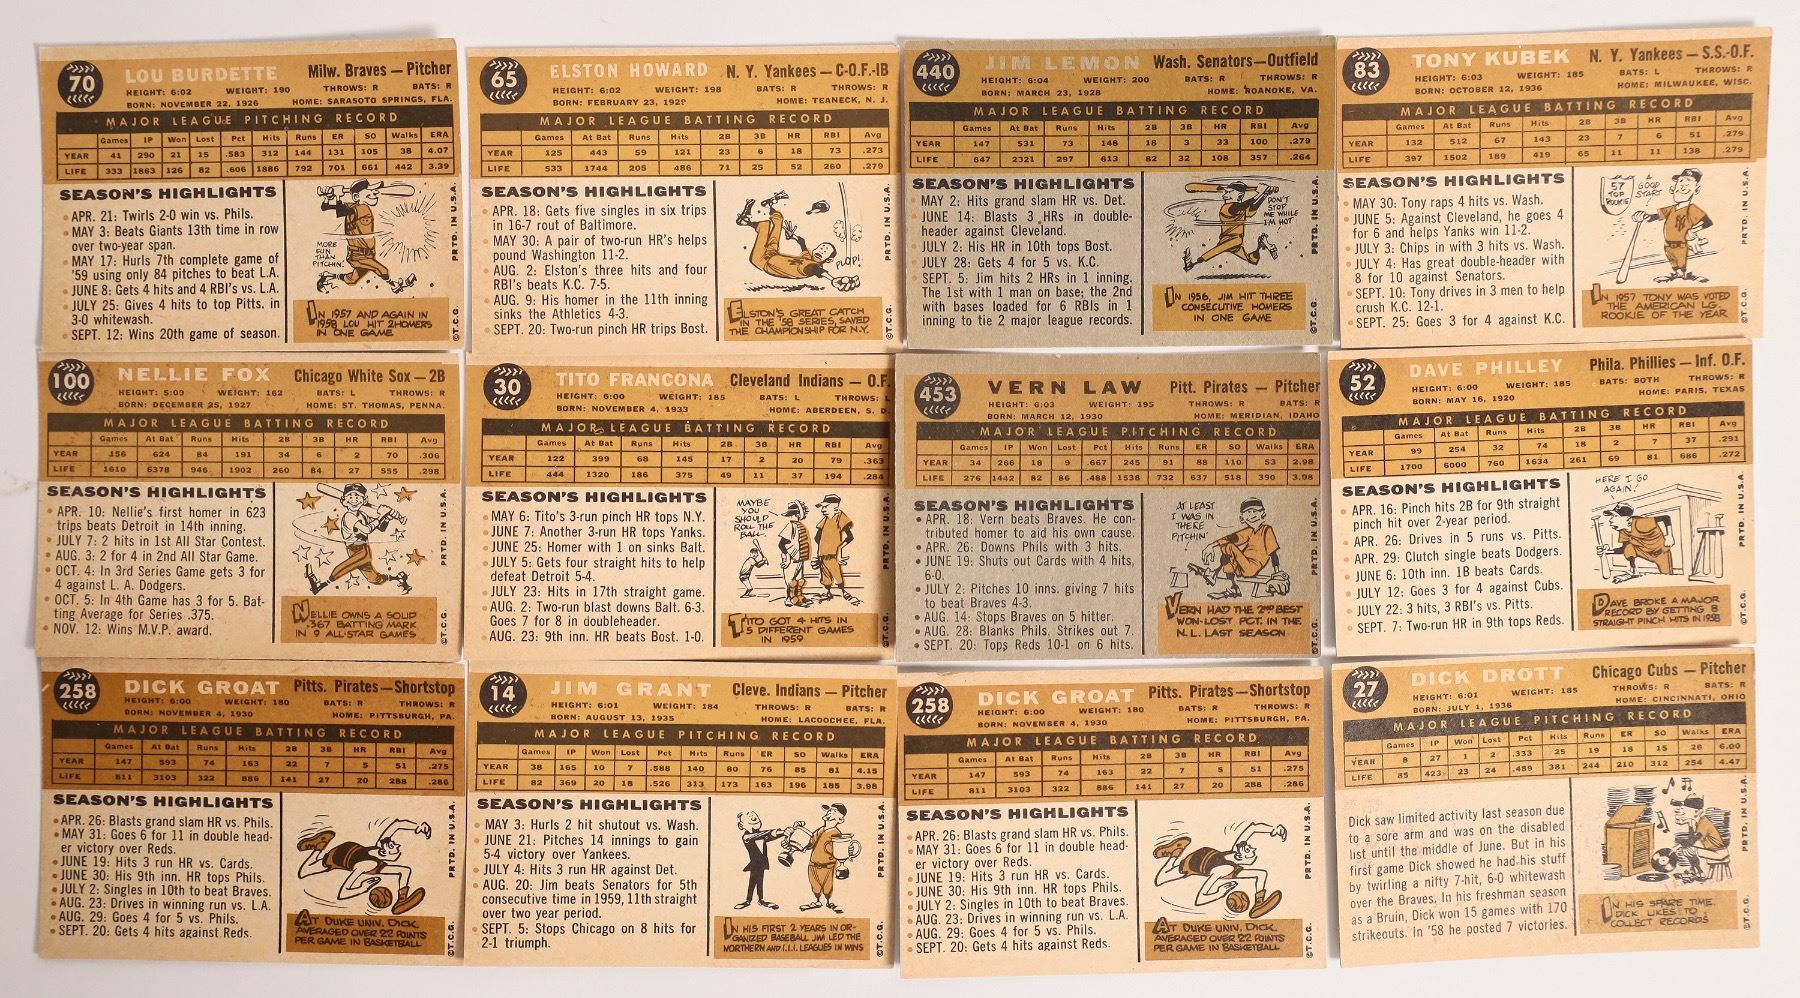 70
LOU BURDETTE Milw. Braves — Pitcher
HEIGHT: 6:02 WEIGHT: 190 THROWS: R BATS: R
BORN: NOVEMBER 22, 1926 HOME: SARASOTO SPRINGS, FLA.
MAJOR LEAGUE PITCHING RECORD
Games IP Won Lost Pct Hits Runs ER SO Walks ERA
YEAR 41 290 21 15 .583 312 144 131 105 38 4.07
LIFE 333 1863 126 82 .606 1886 792 701 661 442 3.39
SEASON'S HIGHLIGHTS
APR. 21: Twirls 2-0 win vs. Phils.
MAY 3: Beats Giants 13th time in row
over two-year span.
MAY 17: Hurls 7th complete game of
'59 using only 84 pitches to beat L.A.
JUNE 8: Gets 4 hits and 4 RBI's vs. L.A.
JULY 25: Gives 4 hits to top Pitts. in
3-0 whitewash.
SEPT. 12: Wins 20th game of season.
MORE
FUN
THAN
PITCHIN'
IN 1957 AND AGAIN IN
1958 LOU HIT 2 HOMERS
IN ONE GAME
©T.C.G. PRTD. IN U.S.A.
65
ELSTON HOWARD N. Y. Yankees — C-O.F.-1B
HEIGHT: 6:02 WEIGHT: 198 BATS: R THROWS: R
BORN: FEBRUARY 23, 1929 HOME: TEANECK, N. J.
MAJOR LEAGUE BATTING RECORD
Games At Bat Runs Hits 2B 3B HR RBI Avg
YEAR 125 443 59 121 23 6 18 73 .273
LIFE 533 1744 205 486 71 25 52 260 .279
SEASON'S HIGHLIGHTS
APR. 18: Gets five singles in six trips
in 16-7 rout of Baltimore.
MAY 30: A pair of two-run HR's helps
pound Washington 11-2.
AUG. 2: Elston's three hits and four
RBI's beats K.C. 7-5.
AUG. 9: His homer in the 11th inning
sinks the Athletics 4-3.
SEPT. 20: Two-run pinch HR trips Bost.
PLOP!
ELSTON'S GREAT CATCH
IN THE '58 SERIES, SAVED
THE CHAMPIONSHIP FOR N.Y.
©T.C.G. PRTD. IN U.S.A.
440
JIM LEMON Wash. Senators—Outfield
HEIGHT: 6:04 WEIGHT: 200 BATS: R THROWS: R
BORN: MARCH 23, 1928 HOME: ROANOKE, VA.
MAJOR LEAGUE BATTING RECORD
Games At Bat Runs Hits 2B 3B HR RBI Avg
YEAR 147 531 73 148 18 3 33 100 .279
LIFE 647 2321 297 613 82 32 108 357 .264
SEASON'S HIGHLIGHTS
MAY 2: Hits grand slam HR vs. Det.
JUNE 14: Blasts 3 HRs in double-
header against Cleveland.
JULY 2: His HR in 10th tops Bost.
JULY 28: Gets 4 for 5 vs. K.C.
SEPT. 5: Jim hits 2 HRs in 1 inning.
The 1st with 1 man on base; the 2nd
with bases loaded for 6 RBIs in 1
inning to tie 2 major league records.
DON'T
STOP
ME WHILE
I'M HOT
IN 1956, JIM HIT THREE
CONSECUTIVE HOMERS
IN ONE GAME
©T.C.G. PRTD. IN U.S.A.
83
TONY KUBEK N. Y. Yankees — S.S.-O.F.
HEIGHT: 6:03 WEIGHT: 185 BATS: L THROWS: R
BORN: OCTOBER 12, 1936 HOME: MILWAUKEE, WISC.
MAJOR LEAGUE BATTING RECORD
Games At Bat Runs Hits 2B 3B HR RBI Avg
YEAR 132 512 67 143 23 7 6 51 .279
LIFE 397 1502 189 419 65 11 11 138 .279
SEASON'S HIGHLIGHTS
MAY 30: Tony raps 4 hits vs. Wash.
JUNE 5: Against Cleveland, he goes 4
for 6 and helps Yanks win 11-2.
JULY 3: Chips in with 3 hits vs. Wash.
JULY 4: Has great double-header with
8 for 10 against Senators.
SEPT. 10: Tony drives in 3 men to help
crush K.C. 12-1.
SEPT. 25: Goes 3 for 4 against K.C.
57
TOP
ROOKIE
GOOD
START
IN 1957 TONY WAS VOTED
THE AMERICAN LG.
ROOKIE OF THE YEAR
©T.C.G. PRTD. IN U.S.A.
100
NELLIE FOX Chicago White Sox — 2B
HEIGHT: 5:09 WEIGHT: 162 BATS: L THROWS: R
BORN: DECEMBER 25, 1927 HOME: ST. THOMAS, PENNA.
MAJOR LEAGUE BATTING RECORD
Games At Bat Runs Hits 2B 3B HR RBI Avg
YEAR 156 624 84 191 34 6 2 70 .306
LIFE 1610 6378 946 1902 260 84 27 555 .298
SEASON'S HIGHLIGHTS
APR. 10: Nellie's first homer in 623
trips beats Detroit in 14th inning.
JULY 7: 2 hits in 1st All Star Contest.
AUG. 3: 2 for 4 in 2nd All Star Game.
OCT. 4: In 3rd Series Game gets 3 for
4 against L. A. Dodgers.
OCT. 5: In 4th Game has 3 for 5. Bat-
ting Average for Series .375.
NOV. 12: Wins M.V.P. award.
NELLIE OWNS A SOLID
.367 BATTING MARK
IN 9 ALL-STAR GAMES
©T.C.G. PRTD. IN U.S.A.
30
TITO FRANCONA Cleveland Indians — O.F.
HEIGHT: 6:00 WEIGHT: 185 BATS: L THROWS: L
BORN: NOVEMBER 4, 1933 HOME: ABERDEEN, S. D.
MAJOR LEAGUE BATTING RECORD
Games At Bat Runs Hits 2B 3B HR RBI Avg
YEAR 122 399 68 145 17 2 20 79 .363
LIFE 444 1320 186 375 49 11 37 194 .284
SEASON'S HIGHLIGHTS
MAY 6: Tito's 3-run pinch HR tops N.Y.
JUNE 7: Another 3-run HR tops Yanks.
JUNE 25: Homer with 1 on sinks Balt.
JULY 5: Gets four straight hits to help
defeat Detroit 5-4.
JULY 23: Hits in 17th straight game.
AUG. 2: Two-run blast downs Balt. 6-3.
Goes 7 for 8 in doubleheader.
AUG. 23: 9th inn. HR beats Bost. 1-0.
MAYBE
YOU
SHOULD
ROLL THE
BALL
TITO GOT 4 HITS IN
5 DIFFERENT GAMES
IN 1959
©T.C.G. PRTD. IN U.S.A.
453
VERN LAW Pitt. Pirates — Pitcher
HEIGHT: 6:03 WEIGHT: 195 THROWS: R BATS: R
BORN: MARCH 12, 1930 HOME: MERIDIAN, IDAHO
MAJOR LEAGUE PITCHING RECORD
Games IP Won Lost Pct Hits Runs ER SO Walks ERA
YEAR 34 266 18 9 .667 245 91 88 110 53 2.98
LIFE 276 1442 82 86 .488 1538 732 637 518 390 3.98
SEASON'S HIGHLIGHTS
APR. 18: Vern beats Braves. He con-
tributed homer to aid his own cause.
APR. 26: Downs Phils with 3 hits.
JUNE 19: Shuts out Cards with 4 hits,
6-0.
JULY 2: Pitches 10 inns. giving 7 hits
to beat Braves 4-3.
AUG. 14: Stops Braves on 5 hitter.
AUG. 28: Blanks Phils. Strikes out 7.
SEPT. 20: Tops Reds 10-1 on 6 hits.
AT LEAST
I WAS IN
THERE
PITCHIN'
VERN HAD THE 2ND BEST
WON-LOST PCT. IN THE
N.L. LAST SEASON
©T.C.G. PRTD. IN U.S.A.
52
DAVE PHILLEY Phila. Phillies — Inf. O.F.
HEIGHT: 6:00 WEIGHT: 185 BATS: BOTH THROWS: R
BORN: MAY 16, 1920 HOME: PARIS, TEXAS
MAJOR LEAGUE BATTING RECORD
Games At Bat Runs Hits 2B 3B HR RBI Avg
YEAR 99 254 32 74 18 2 7 37 .291
LIFE 1700 6000 760 1634 261 69 81 686 .272
SEASON'S HIGHLIGHTS
APR. 16: Pinch hits 2B for 9th straight
pinch hit over 2-year period.
APR. 26: Drives in 5 runs vs. Pitts.
APR. 29: Clutch single beats Dodgers.
JUNE 6: 10th inn. 1B beats Cards.
JULY 12: Goes 3 for 4 against Cubs.
JULY 22: 3 hits, 3 RBI's vs. Pitts.
SEPT. 7: Two-run HR in 9th tops Reds.
HERE I GO
AGAIN!
DAVE BROKE A MAJOR
RECORD BY GETTING 8
STRAIGHT PINCH HITS IN 1958
©T.C.G. PRTD. IN U.S.A.
258
DICK GROAT Pitts. Pirates—Shortstop
HEIGHT: 6:00 WEIGHT: 180 BATS: R THROWS: R
BORN: NOVEMBER 4, 1930 HOME: PITTSBURGH, PA.
MAJOR LEAGUE BATTING RECORD
Games At Bat Runs Hits 2B 3B HR RBI Avg
YEAR 147 593 74 163 22 7 5 51 .275
LIFE 811 3103 322 886 141 27 20 288 .286
SEASON'S HIGHLIGHTS
APR. 26: Blasts grand slam HR vs. Phils.
MAY 31: Goes 6 for 11 in double head-
er victory over Reds.
JUNE 19: Hits 3 run HR vs. Cards.
JUNE 30: His 9th inn. HR tops Phils.
JULY 2: Singles in 10th to beat Braves.
AUG. 23: Drives in winning run vs. L.A.
AUG. 29: Goes 4 for 5 vs. Phils.
SEPT. 20: Gets 4 hits against Reds.
AT DUKE UNIV. DICK
AVERAGED OVER 22 POINTS
PER GAME IN BASKETBALL
©T.C.G. PRTD. IN U.S.A.
14
JIM GRANT Cleve. Indians — Pitcher
HEIGHT: 6:01 WEIGHT: 184 THROWS: R BATS: R
BORN: AUGUST 13, 1935 HOME: LACOOCHEE, FLA.
MAJOR LEAGUE PITCHING RECORD
Games IP Won Lost Pct Hits Runs ER SO Walks ERA
YEAR 38 165 10 7 .588 140 80 76 85 81 4.15
LIFE 82 369 20 18 .526 313 173 163 196 185 3.98
SEASON'S HIGHLIGHTS
MAY 3: Hurls 2 hit shutout vs. Wash.
JUNE 21: Pitches 14 innings to gain
5-4 victory over Yankees.
JULY 4: Hits 3 run HR against Det.
AUG. 20: Jim beats Senators for 5th
consecutive time in 1959, 11th straight
over two year period.
SEPT. 5: Stops Chicago on 8 hits for
2-1 triumph.
IN HIS FIRST 2 YEARS IN OR-
GANIZED BASEBALL JIM LED THE
NORTHERN AND I.I.I. LEAGUES IN WINS
©T.C.G. PRTD. IN U.S.A.
258
DICK GROAT Pitts. Pirates—Shortstop
HEIGHT: 6:00 WEIGHT: 180 BATS: R THROWS: R
BORN: NOVEMBER 4, 1930 HOME: PITTSBURGH, PA.
MAJOR LEAGUE BATTING RECORD
Games At Bat Runs Hits 2B 3B HR RBI Avg
YEAR 147 593 74 163 22 7 5 51 .275
LIFE 811 3103 322 886 141 27 20 288 .286
SEASON'S HIGHLIGHTS
APR. 26: Blasts grand slam HR vs. Phils.
MAY 31: Goes 6 for 11 in double head-
er victory over Reds.
JUNE 19: Hits 3 run HR vs. Cards.
JUNE 30: His 9th inn. HR tops Phils.
JULY 2: Singles in 10th to beat Braves.
AUG. 23: Drives in winning run vs. L.A.
AUG. 29: Goes 4 for 5 vs. Phils.
SEPT. 20: Gets 4 hits against Reds.
AT DUKE UNIV. DICK
AVERAGED OVER 22 POINTS
PER GAME IN BASKETBALL
©T.C.G. PRTD. IN U.S.A.
27
DICK DROTT Chicago Cubs — Pitcher
HEIGHT: 6:01 WEIGHT: 185 THROWS: R BATS: R
BORN: JULY 1, 1936 HOME: CINCINNATI, OHIO
MAJOR LEAGUE PITCHING RECORD
Games IP Won Lost Pct Hits Runs ER SO Walks ERA
YEAR 8 27 1 2 .333 25 19 18 15 26 6.00
LIFE 85 423 23 24 .489 381 244 210 312 254 4.47
Dick saw limited activity last season due
to a sore arm and was on the disabled
list until the middle of June. But in his
first game Dick showed he had his stuff
by twirling a nifty 7-hit, 6-0 whitewash
over the Braves. In his freshman season
as a Bruin, Dick won 15 games with 170
strikeouts. In '58 he posted 7 victories.
IN HIS SPARE TIME,
DICK LIKES TO
COLLECT RECORDS
©T.C.G. PRTD. IN U.S.A.